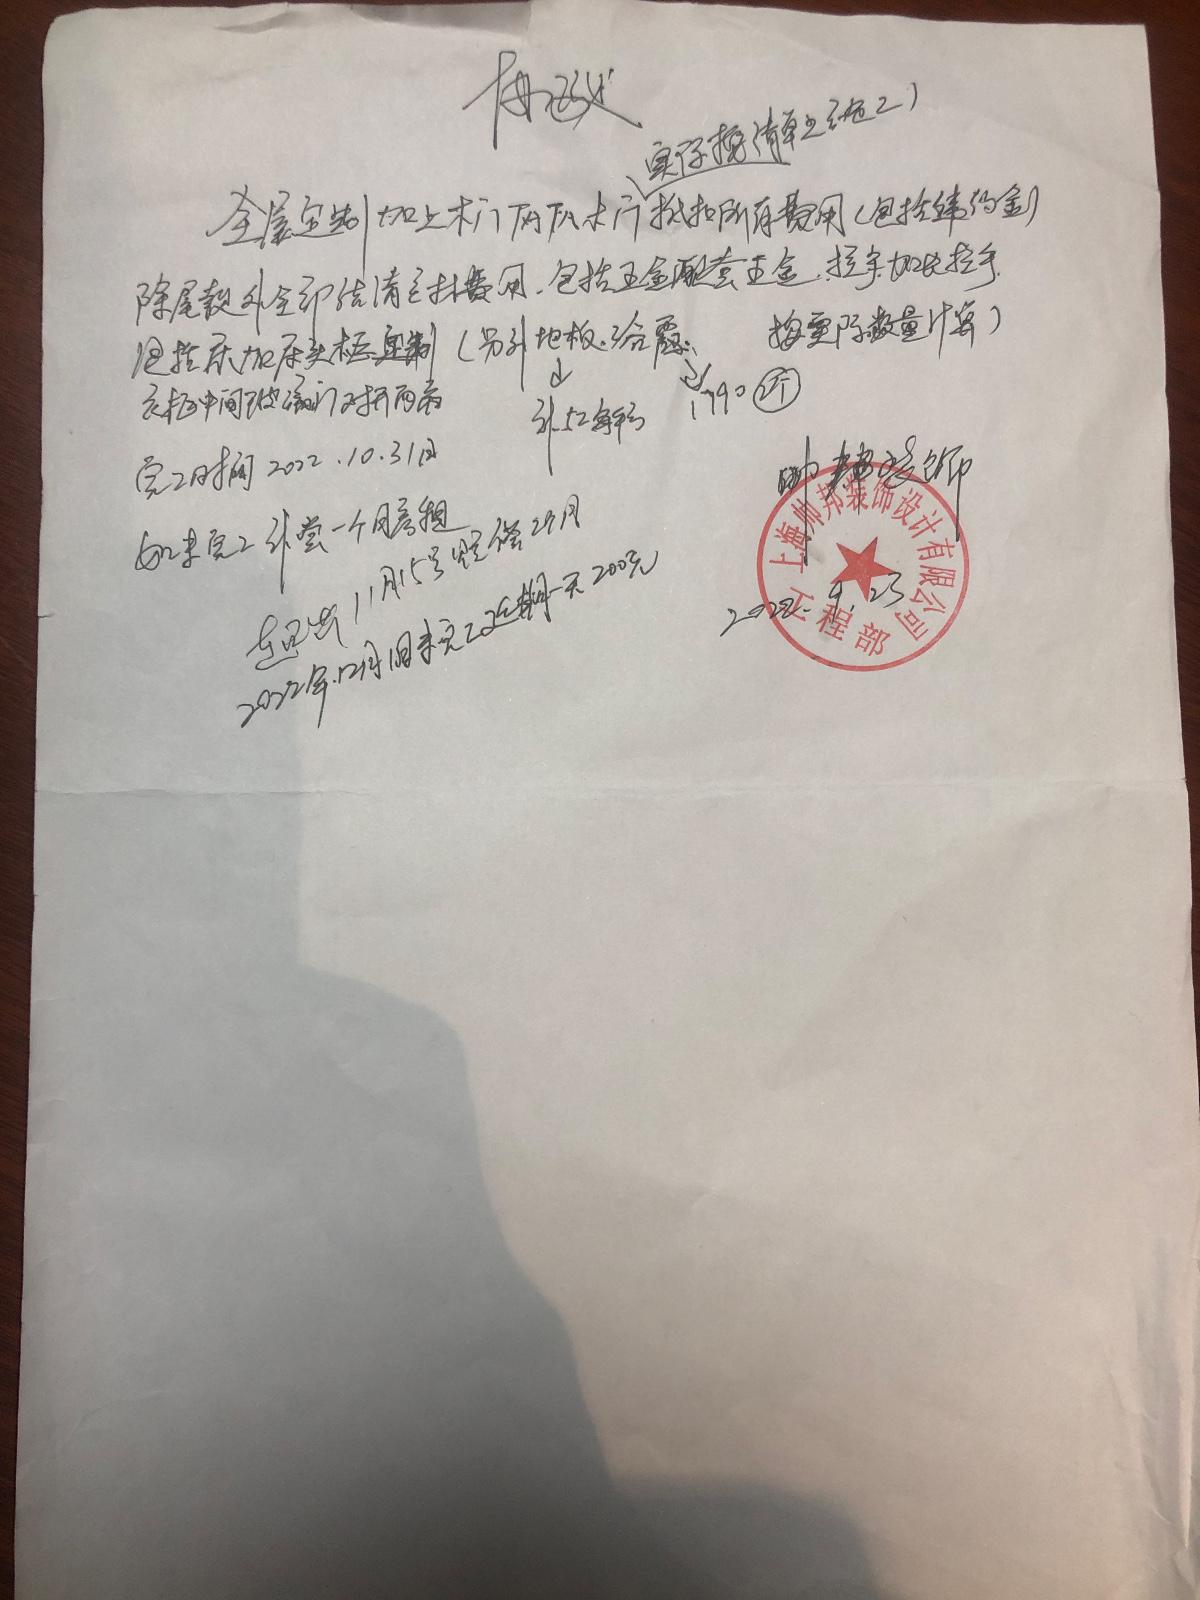 协议
实际按清单上施工)
全屋定制加上木门两扇木门抵扣所有费用(包括违约金)
除尾款外全部结清 费用、包括五金配套五金、拉手加长拉手
包括床加床头柜定制(另外地板、浴霸、按实际数量计算)
衣柜中间玻璃门对开两扇
补52每平方
790 2个
完工时间2022.10.31日
帅邦装饰
如未完工补偿一个月房租
11月15号赔偿2个月
2022年.12月1日未完工延期一天200元
2022.9.23
上海帅邦装饰设计有限公司
工程部